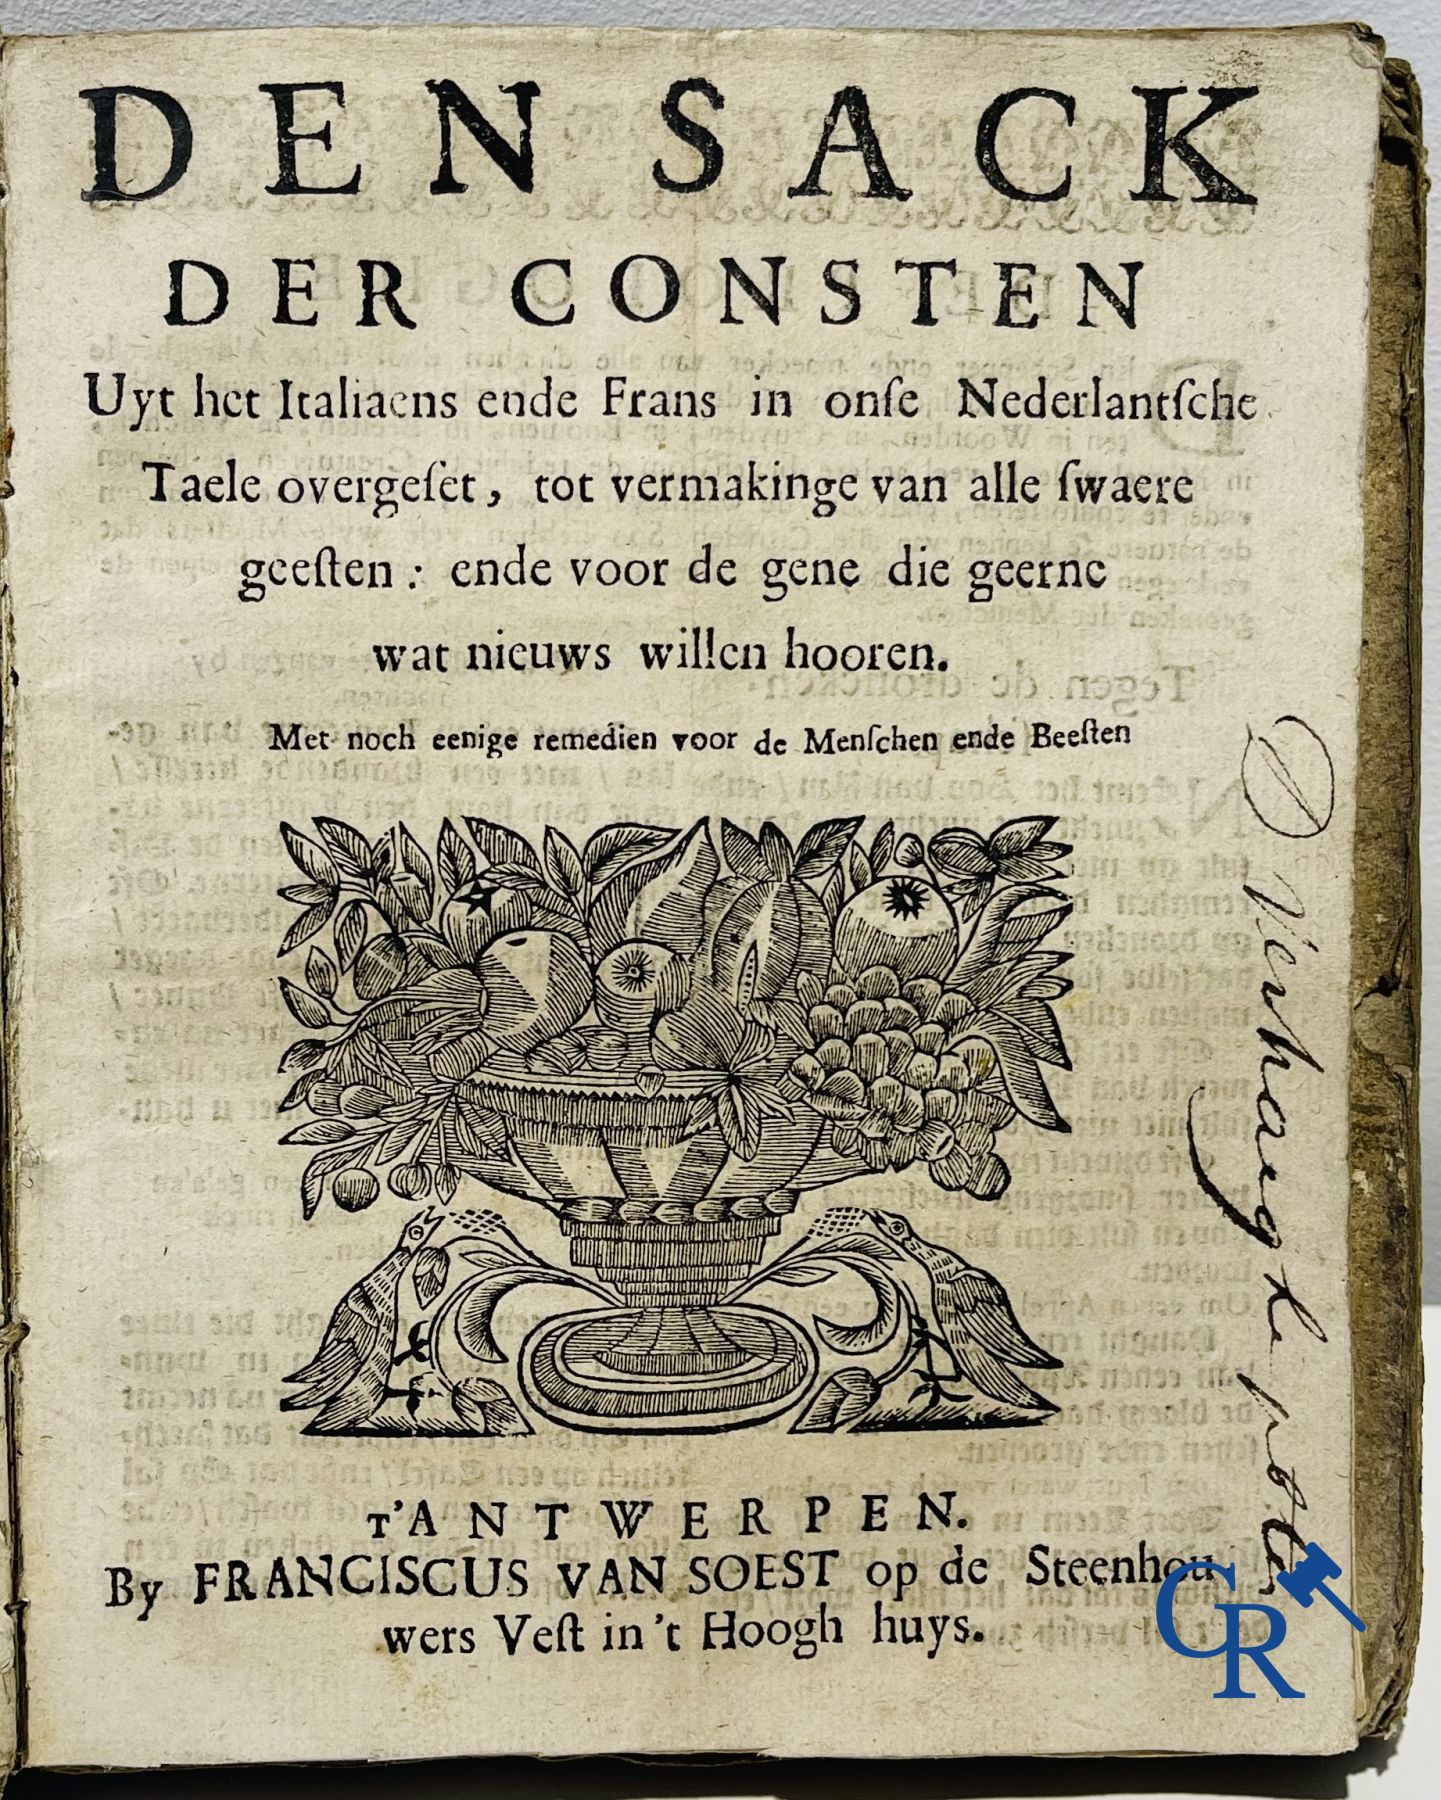 DEN SACK
DER CONSTEN
Uyt het Italiaens ende Frans in onſe Nederlantſche
Taele overgeſet, tot vermakinge van alle ſwaere
geeſten: ende voor de gene die geerne
wat nieuws willen hooren.
Met noch eenige remedien voor de Menſchen ende Beeſten
T'ANTWERPEN.
By FRANCISCUS VAN SOEST op de Steenhou
wers Veſt in 't Hoogh huys.
Verhaeghe
CR